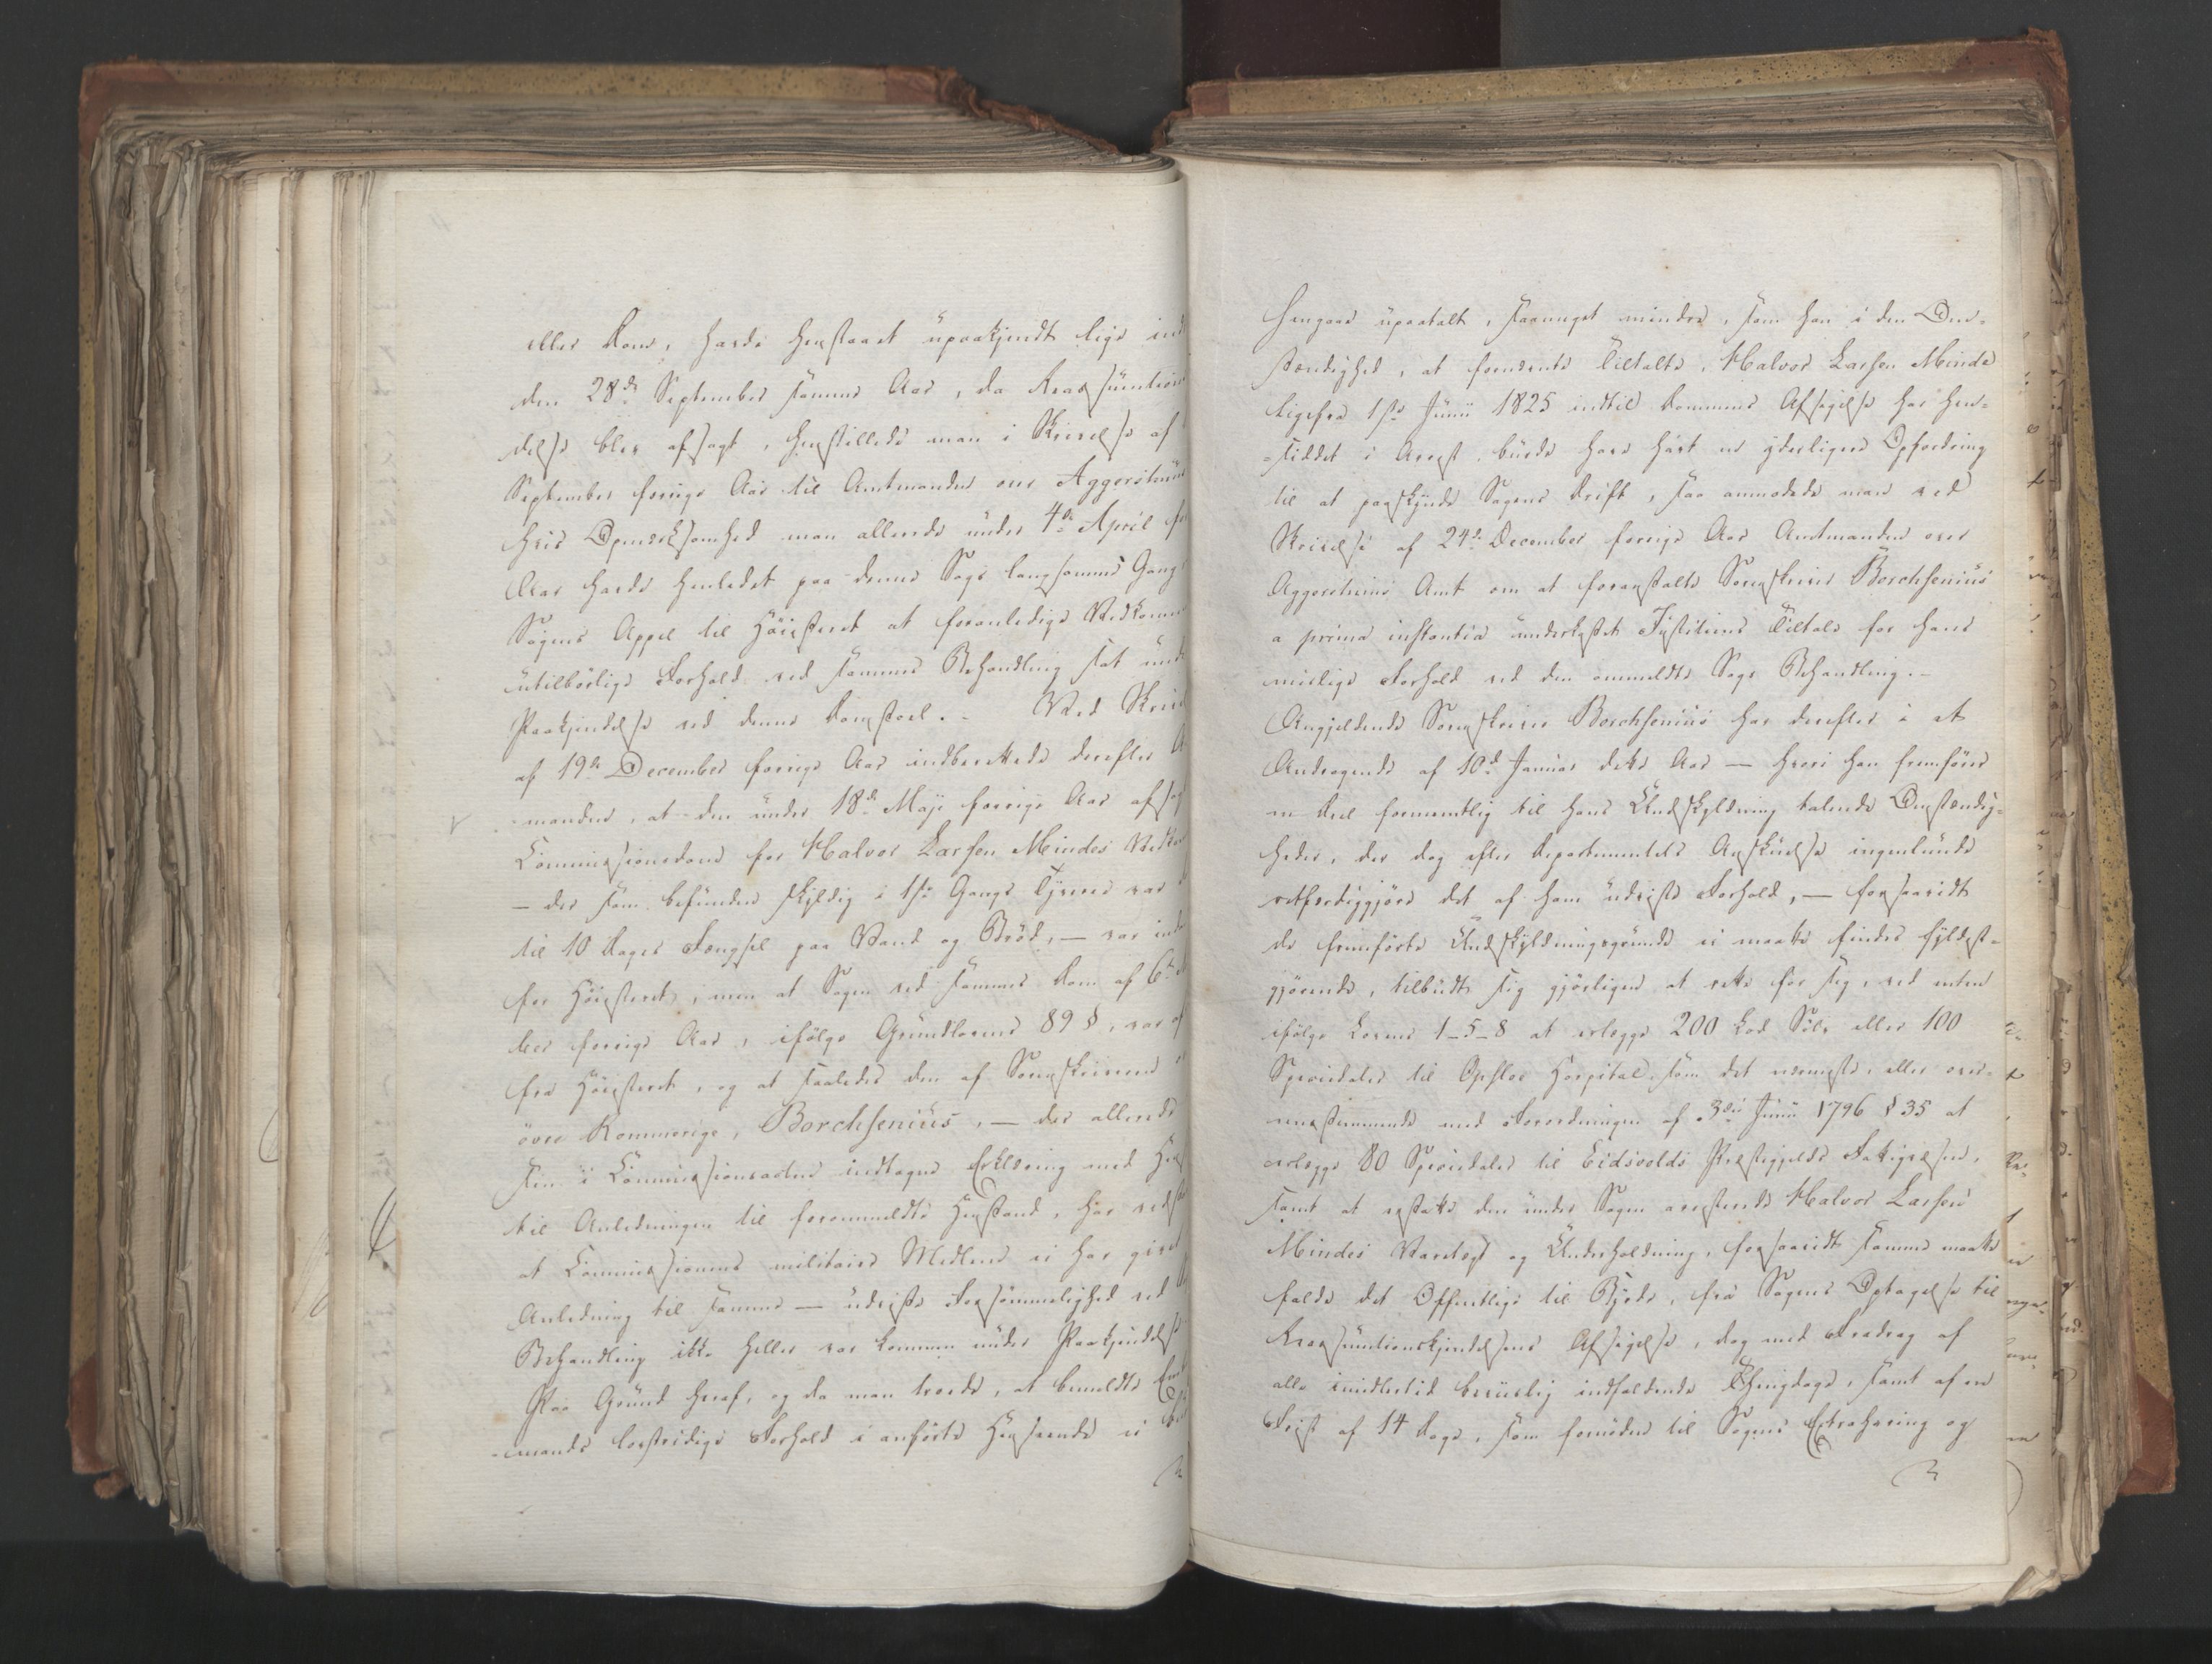 eller Dom, havde henstaaet upaakjendt lige ind
den 28de September samme Aar, da Reassumtions
delse blev afsagt, henstillede man i Skrivelse af
September forrige Aar til Amtmanden over Aggershuus
hvis Opmærksomhed man allerede under 4de April for
Aar havde henledet paa denne Sags langsomme Gang
Sagens Appel til Høiesteret at foranledige Vedkomm
utilbørlige Forhold ved sammes Behandling sat unde
Paakjendelse ved denne Domstoel. - Ved Skriv
af 19de December forrige Aar indberettede derefter A
manden, at den under 18de Maji forrige Aar afsag
Commissionsdom for Halvor Larsen Mindes Vedkom
- der som befunden skyldig i 1ste Gangs Tyverie var
til 10 Dages Fængsel paa Vand og Brød, - var inds
for Høiesteret, men at Sagen ved sammes Dom af 6te
ber forrige Aar, ifølge Grundlovens 89 §, var af
fra Høiesteret, og at saaledes den af Sorenskriveren
øvre Romerige, Borchsenius, - der allerede
sin i Commissionsacten indtagne Erklæring med Hen
til Anledningen til forommeldte Henstand, har
at Commissionens militaire Medlem ei har givet
Anledning til samme - udviste Forsømmelighed ved
Behandling ikke heller var kommen under Paakjendelse
Paa Grund heraf, og da man troede, at bemeldte Em
-mands lovstridige Forhold i anførte Henseende ei bur
hengaae upaatalt, saameget mindre, som han i den Om-
stændighed, at fornævnte Tiltalte, Halvor Larsen Minde
ligefra 1ste Junii 1825 indtil Dommens Afsigelse har hen-
-siddet i Arrest, burde have havt en yderligere Opfordring
til at paaskynde Sagens Drift, saa anmodede man ved
Skrivelse af 24de December forrige Aar Amtmanden over
Aggershuus Amt om at foranstalte Sorenskriver Borchsenius
a prima instantia underkastet Justitiens Tiltale for hans
uvillige Forhold ved den ommeldte Sags Behandling. -
Angjeldende Sorenskriver Borchsenius har derefter i et
Andragende af 10de Januar dette Aar - hvori han fremfører
en Deel formeentlig til hans Undskyldning talende Omstændig-
heder, der dog efter Departementets Anskuelse ingenlunde
retfærdiggjøre det af ham udviste Forhold, - forsaavidt
de fremførte Undskyldningsgrunde ei maatte findes fyldest-
gjørende, tilbudt sig gjørligen at rette for sig, ved enten
ifølge Lovens 1-5-8 at erlægge 200 Lod Sølv eller 100
Speciedaler til Opsloe Hospital, som det nærmeste, eller over-
eensstemmende med Forordningen af 3die Junii 1796 § 35 at
erlægge 80 Speciedaler til Eidsvolds Præstegjelds Fattigvæsen,
samt at erstatte den under Sagen arresterede Halvor Larsen
Mindes Varetægt og Underholdning, forsaavidt samme maatte
falde det Offentlige til Byrde, fra Sagens Optagelse til
Reassumtionskjendelsens Afsigelse, dog med Fradrag af
alle imidlertid beviislig indfaldende Thingdage, samt af en
Frist af 14 Dage, som fornøden til Sagens Extrahering og